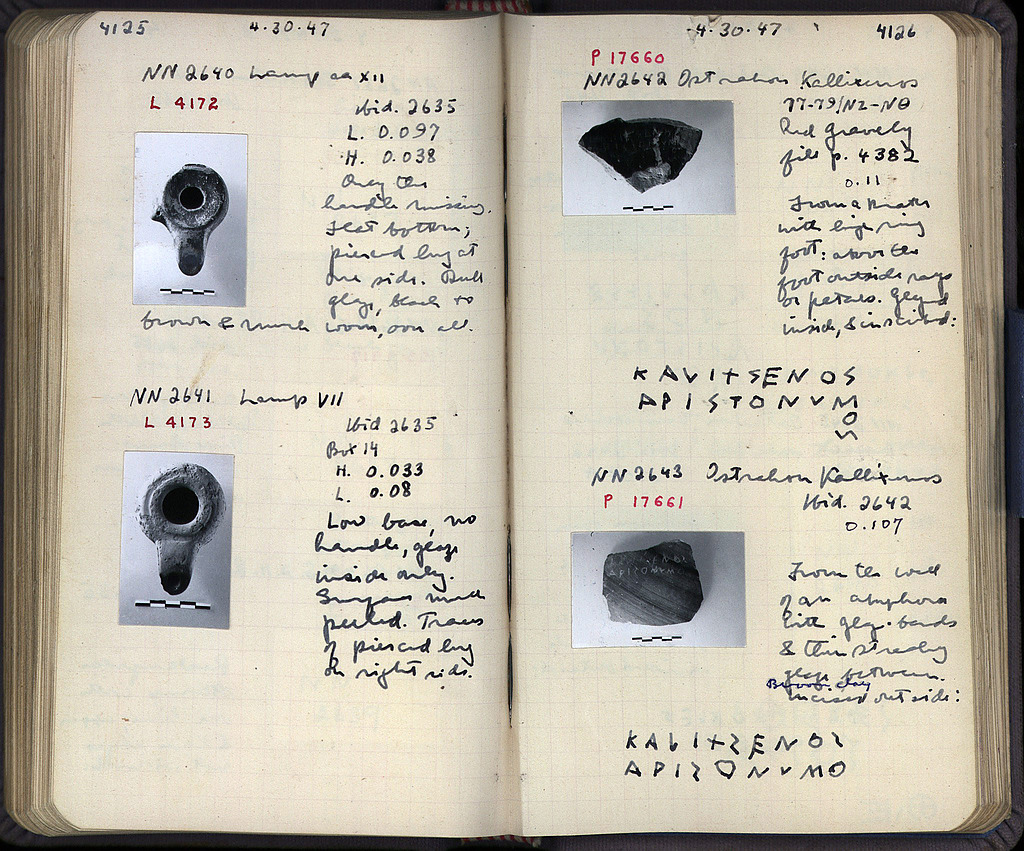 4125
4.30.47
NN 2640 Lamp aa XII
L 4172
Ibid. 2635
L. 0.097
H. 0.038
Only the
handle missing.
Flat bottom;
pierced lug at
one side. Dull
glaze, black to
brown & much worn, over all.
NN 2641 Lamp VII
L 4173
Ibid 2635
Box 14
H. 0.033
L. 0.08
Low base, no
handle, glaze
inside only.
Surface much
peeled. Traces
of pierced lug
on right side.
4.30.47
4126
P 17660
NN2642 Ostrakon Kallixenos
77-79/ΝΖ-ΝΘ
Red gravelly
fill p. 4382
0.11
From a krater
with large ring
foot: above the
foot outside rays
or petals. Glazed
inside, & inscribed:
ΚΑVΙ+SΕΝΟS
ΑΡΙSΤΟΝVΜ
Ο
S
NN2643 Ostrakon Kallixenos
P 17661
Ibid. 2642
0.107
From the wall
of an amphora
with glaze bands
& thin streaky
glaze between.
Brown clay
Incised outside:
ΚΑLΙ+SΕΝΟS
ΑΡΙSΟΝVΜΟ